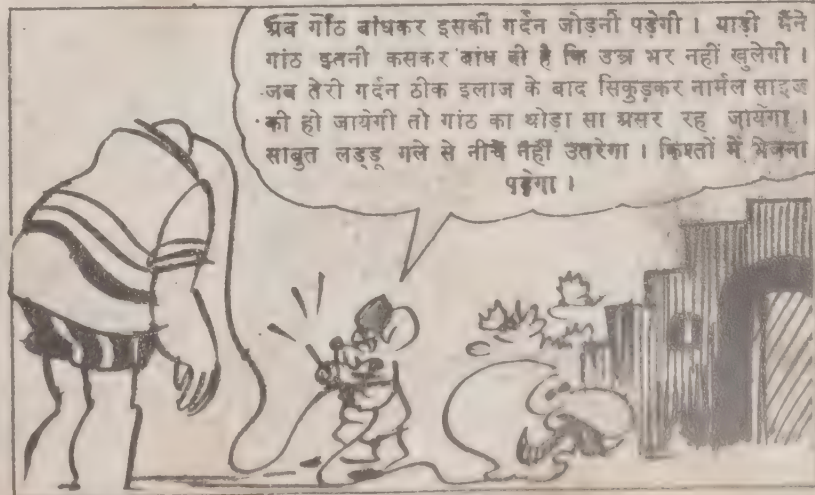 अब गाँठ बांधकर इसकी गर्दन जोड़नी पड़ेगी। याड़ी मैंने
गांठ इतनी कसकर बांध दी है कि उम्र भर नहीं खुलेगी।
जब तेरी गर्दन ठीक इलाज के बाद सिकुड़कर नार्मल साइज
की हो जायेगी तो गांठ का थोड़ा सा असर रह जायेगा।
साबुत लड्डू गले से नीचे नहीं उतरेगा। किश्तों में भेजना
पड़ेगा।